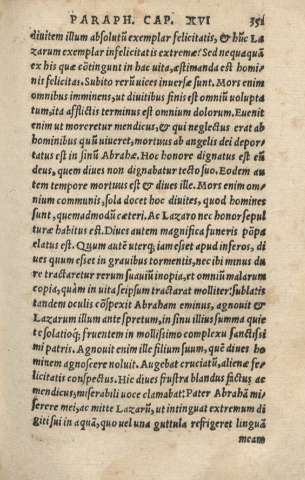 PARAPH. CAP. XVI 351
diuitem illum absolutũ exemplar felicitatis, & hũc La
zarum exemplar infelicitatis extremæ? Sed nequaquã
ex his quæ cõtingunt in hac uita, æstimanda est homi-
nis felicitas. Subito rerũ uices inuersæ sunt. Mors enim
omnibus imminens, ut diuitibus finis est omniũ uolupta
tum, ita afflictis terminus est omnium dolorum. Euenit
enim ut moreretur mendicus, & qui neglectus erat ab
hominibus quũ uiueret, mortuus ab angelis dei depor-
tatus est in sinũ Abrahæ. Hoc honore dignatus est eũ
deus, quem diues non dignabatur tecto suo. Eodem au
tem tempore mortuus est & diues ille. Mors enim om-
nium communis, sola docet hoc diuites, quod homines
sunt, quemadmodũ cæteri. Ac Lazaro nec honor sepul
turæ habitus est. Diues autem magnifica funeris põpa
elatus est. Quum autẽ uterq; iam esset apud inferos, di
ues quum esset in grauibus tormentis, nec ibi minus du
re tractaretur rerum suauiũ inopia, et omniũ malarum
copia, quàm in uita seipsum tractarat molliter: sublatis
tandem oculis cõspexit Abraham eminus, agnouit &
Lazarum illum ante spretum, in sinu illius summa quie
te solatioq; fruentem in mollissimo complexu sanctissi
mi patris. Agnouit enim ille filium suum, quẽ diues ho
minem agnoscere noluit. Augebat cruciatũ, alienæ fe-
licitatis conspectus. Hic diues frustra blandus factus ac
mendicus, miserabili uoce clamabat: Pater Abrahã mi-
serere mei, ac mitte Lazarũ, ut intinguat extremum di
giti sui in aquã, quo uel una guttula refrigeret linguã
meam